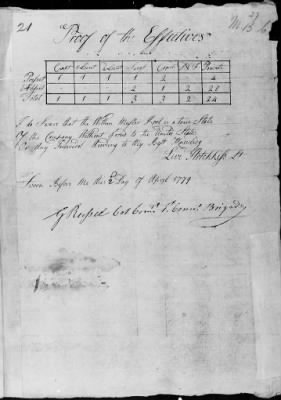 21
Proof of the Effectives
Capt 1 Lieut 2 Lieut Serjt Corpl D & F Privates
Present 1 1 1 1 2 4
Absent 2 1 2 20
Total 1 1 1 3 3 2 24
I do Swear that the Within Muster Roll is a true State
Of the Company Without fraud to the United States
Or any Individual According to My Best Knowledge
Levi Hotchkiss Lt
Sworn Before Me this 2d Day of April 1779
G Russel Col Comg 1st Conn. Brigade